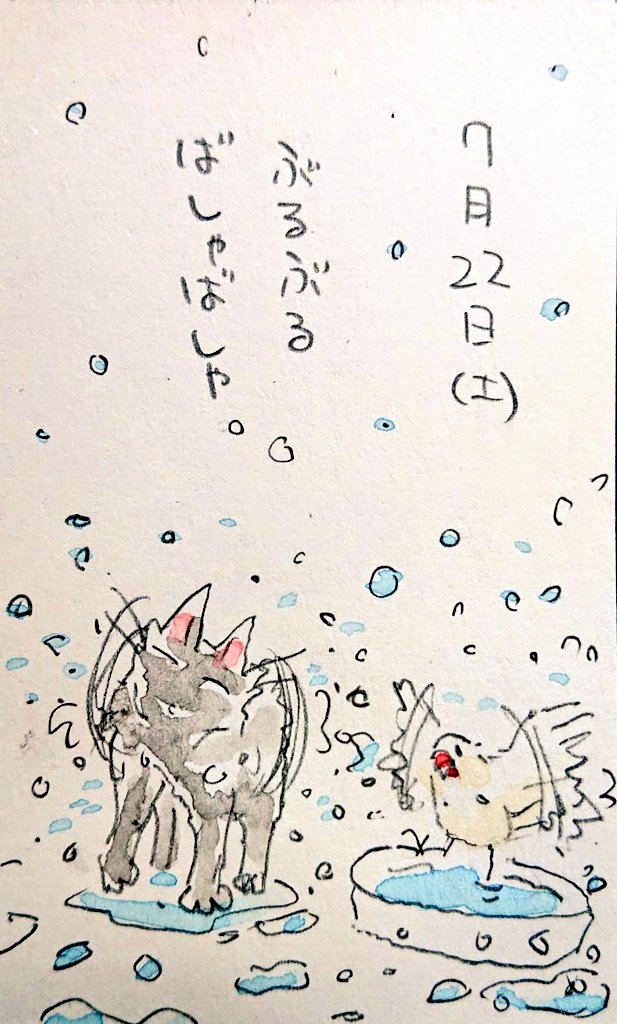 7月22日(土)
ぶるぶる
ばしゃばしゃ